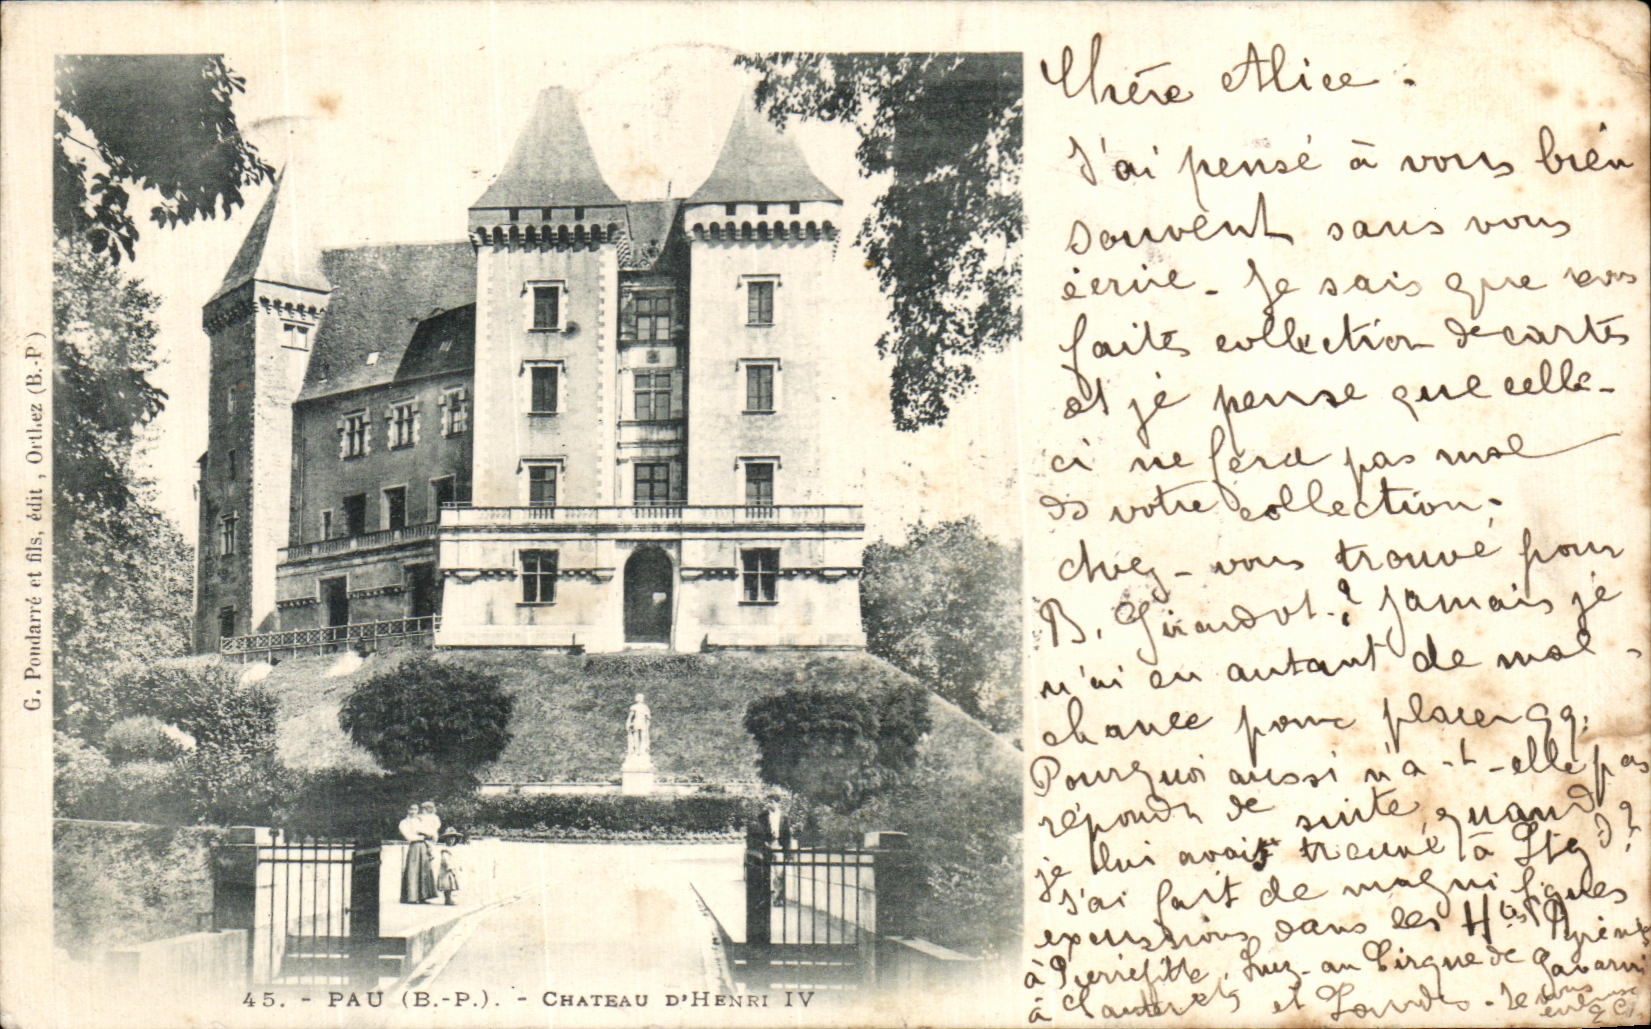 G. Pondarré et fils, édit, Orthez (B.-P)
45. - PAU (B.-P.). - CHATEAU D'HENRI IV
Chère Alice.
J'ai pensé à vous bien
souvent sans vous
écrire. Je sais que vous
faites collection de cartes
et je pense que celle-
ci ne fera pas mal
ds votre collection.
chez-vous trouvé pour
B. Girardot.? Jamais je
n'ai eu autant de mal
chance pour placer qq.
Pourquoi aussi n'a-t-elle pas
répondu de suite, quand
je lui avais trouvé à
J'ai fait de magnifiques
excursions dans les Htes Pyrénées
à Pierrefitte, Luz - au Cirque de Gavarni
à Cauterets et Lourdes - Je vous